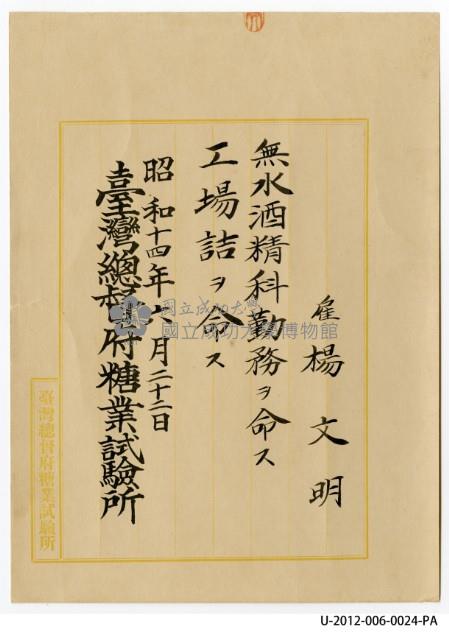 雇 楊文明
無水酒精科勤務ヲ命ス
工場詰ヲ命ス
昭和十四年六月二十二日
臺灣總督府糖業試驗所
臺灣總督府糖業試驗所
國立成功大學
國立成功大學博物館
U-2012-006-0024-PA